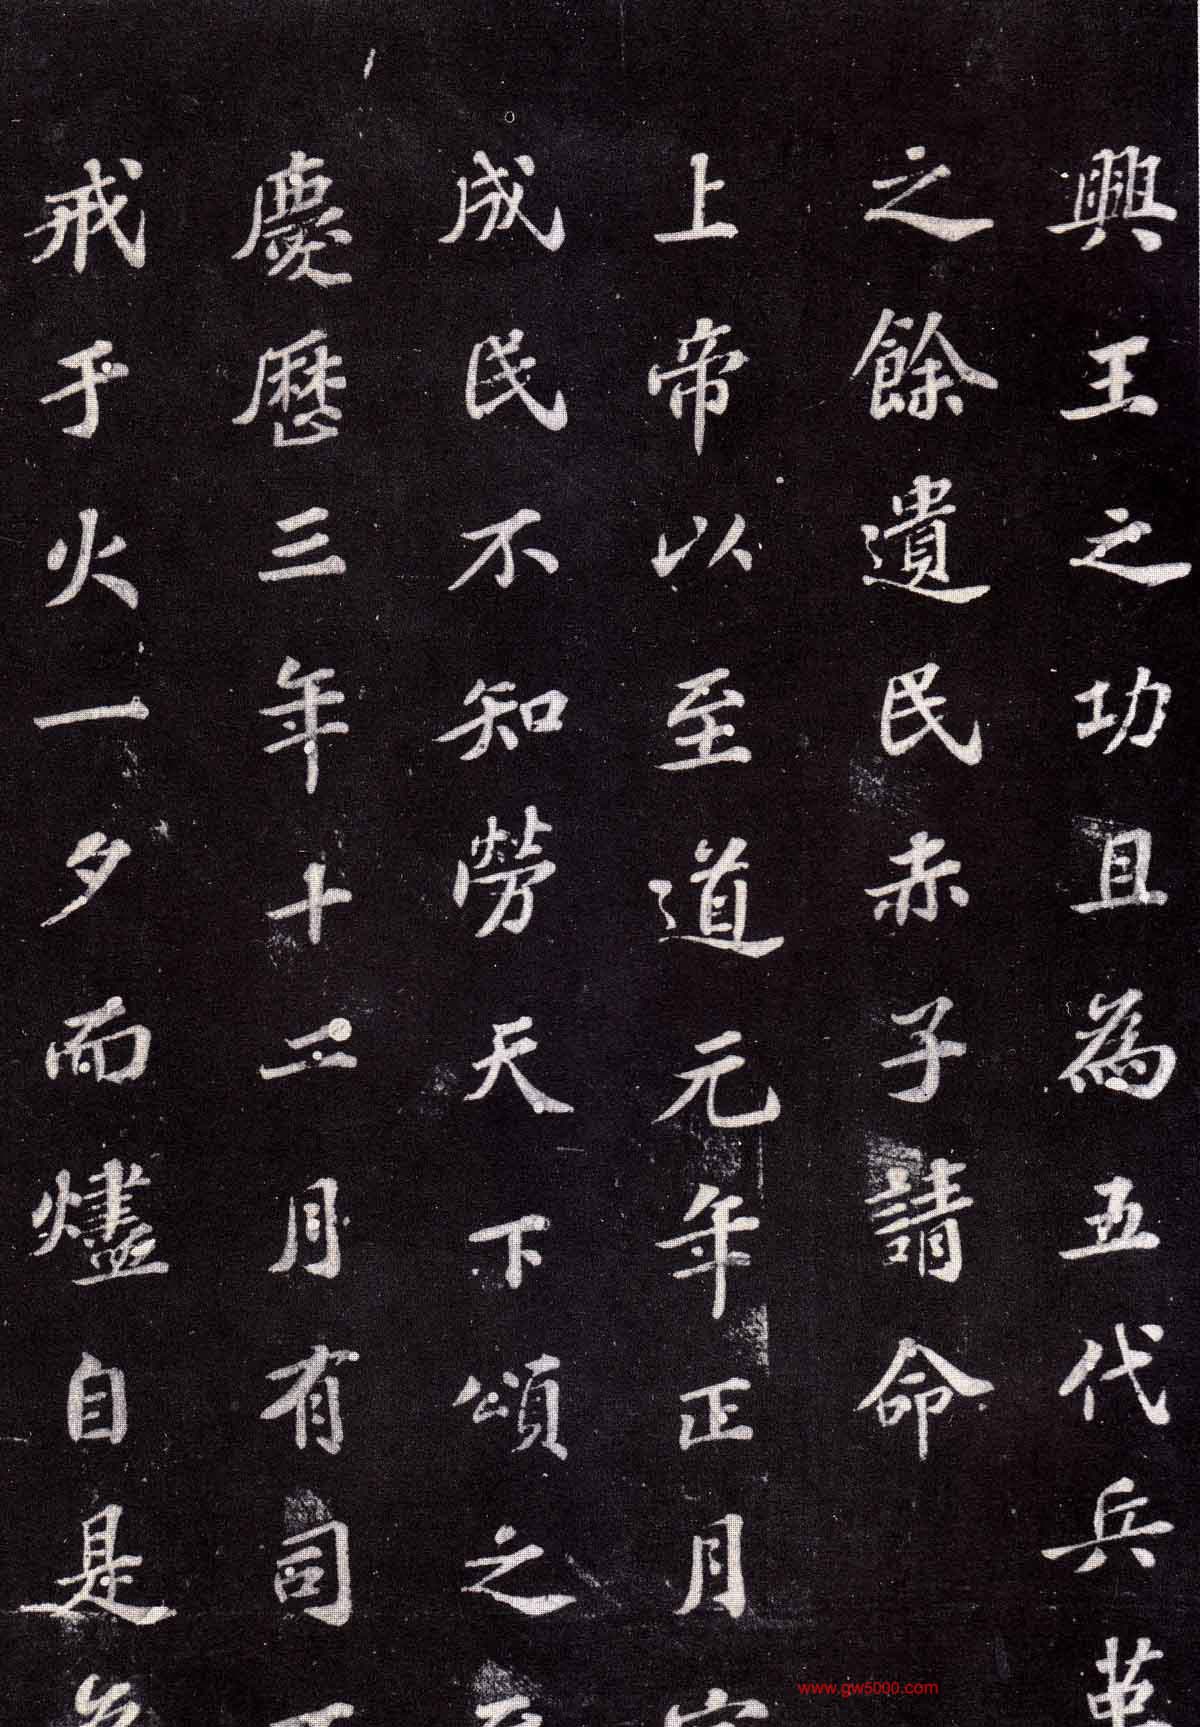 興王之功且為五代兵革
之餘遺民赤子請命
上帝以至道元年正月
成民不知勞天下頌之
慶歷三年十二月有司
戒乎火一夕而燼自是
www.gw5000.com